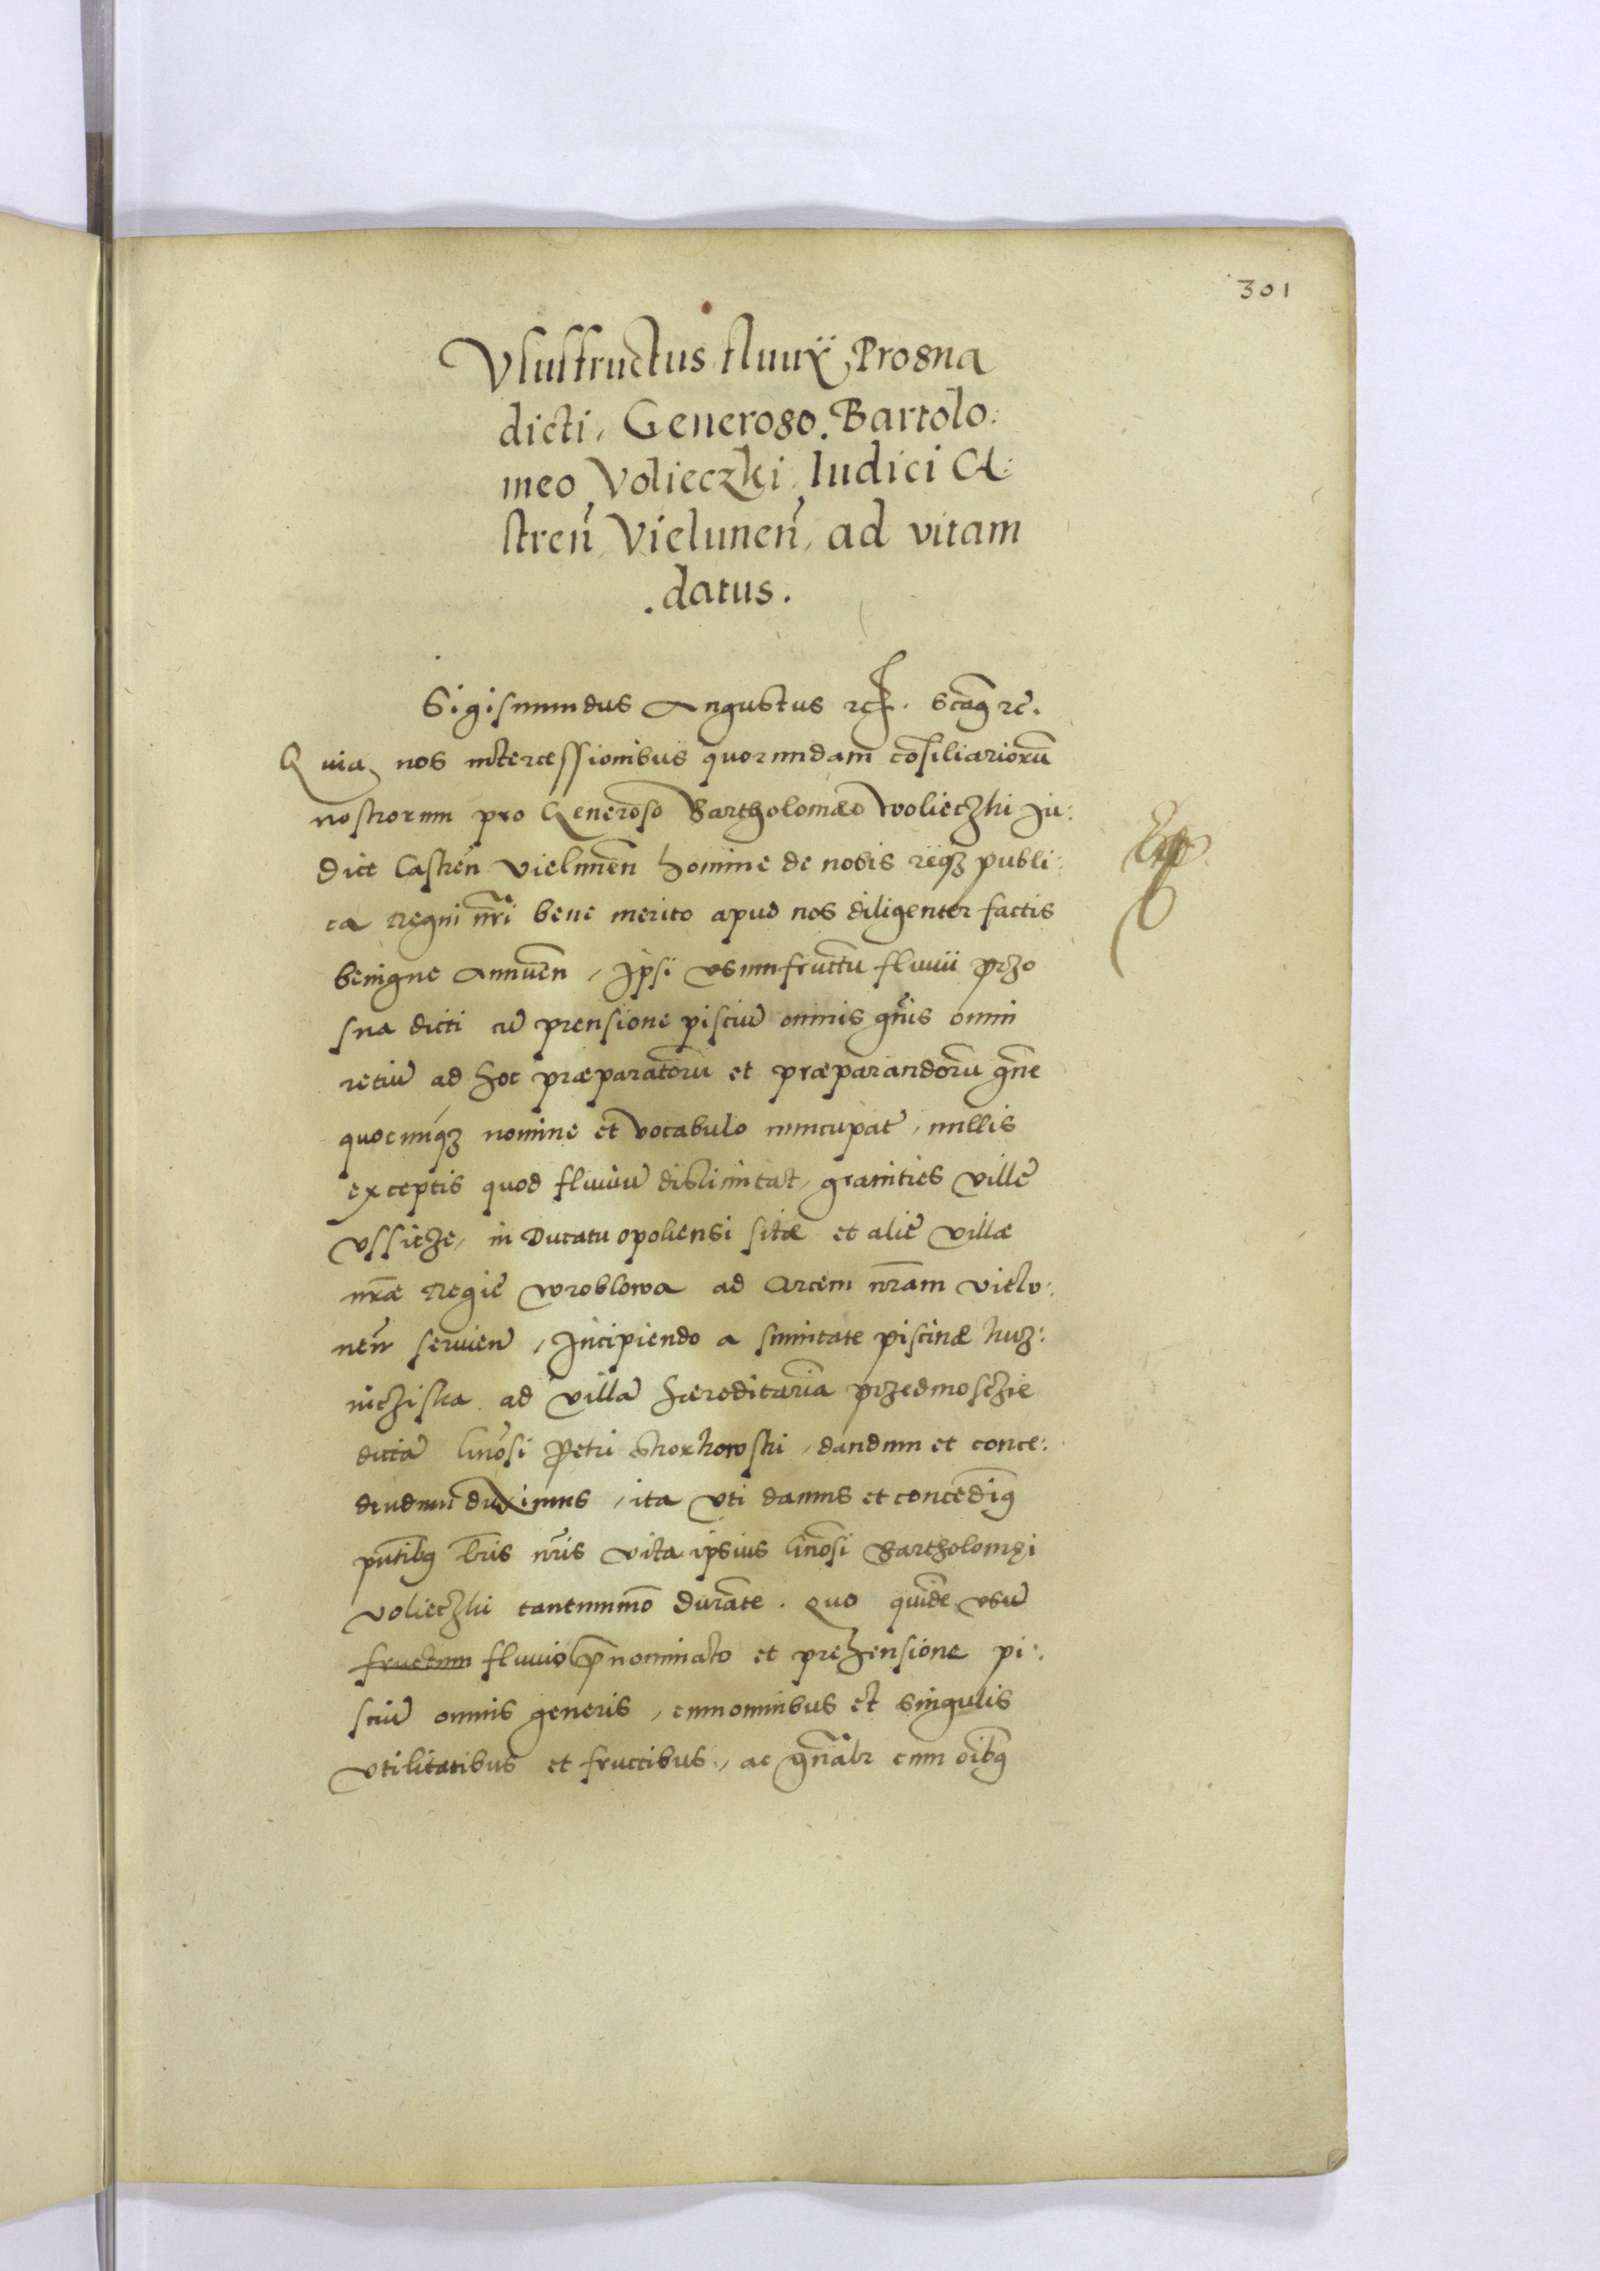 301
Vsusfructus fluuÿ Prosna
dicti, Generoso Bartolo:
meo Volieczki Iudici Ca:
stren̄ Vielunen̄, ad vitam
.datus.
Sigismundus Augustus rc. rc.
Quia nos intercessionibus quorundam cōsiliariorū
nostrorum pro Generoso Bartholomæo Wolieczki Ju:
dice Castren̄ Vielunen̄ homine de nobis reiqꝫ publi:
ca Regni nr̄i bene merito apud nos diligenter factis
benigne annuen̄, Ipsi vsumfructū fluuii Przo
sna dicti cū prensione pisciū omnis gn̄is omniū
retiū ad hoc præparatorū et præparandorū gn̄e
quocunqꝫ nomine et vocabulo nuncupat, nullis
exceptis quod fluuiū dislimitat, granities villæ
Vssicze, in Ducatu opoliensi sitæ et aliæ villæ
nr̄æ Regiæ Wroblowa ad Arcem nr̄am Vielu:
nen̄ seruien̄, Incipiendo a sumitate piscinæ kuz:
niczista ad villā hæreditariā Przedmosczie
dictā Gn̄osi Petri, dandum et conce:
dendum duximus, ita vti damus et concedimꝰ
pn̄tibꝰ lr̄is nr̄is vita ipsius Gn̄osi Bartholomęi
Volieczki tantummō durāte. Quo quidē vsu
fructum fluuio p̄nominato et prehensione pi:
sciū omnis generis, cum omnibus et singulis
vtilitatibus et fructibus, ac gn̄alr cum oībꝰ